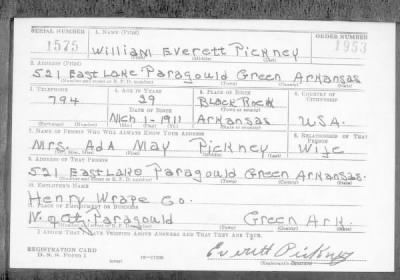 SERIAL NUMBER 1. NAME (Print) ORDER NUMBER
1575 William Everett Pickney 1953
2. ADDRESS (Print)
521 East Lake Paragould Green Arkansas
3. TELEPHONE 4. AGE IN YEARS 5. PLACE OF BIRTH 6. COUNTRY OF CITIZENSHIP
794 29 Black Rock
DATE OF BIRTH
Mch 1-1911 Arkansas U.S.A.
7. NAME OF PERSON WHO WILL ALWAYS KNOW YOUR ADDRESS 8. RELATIONSHIP OF THAT PERSON
Mrs. Ada May Pickney Wife
9. ADDRESS OF THAT PERSON
521 East Lake Paragould Green Arkansas.
10. EMPLOYER'S NAME
Henry Wrape Co.
11. PLACE OF EMPLOYMENT OR BUSINESS
Paragould Green Ark.
I AFFIRM THAT I HAVE VERIFIED ABOVE ANSWERS AND THAT THEY ARE TRUE.
REGISTRATION CARD
D. S. S. Form 1
Everett Pickney